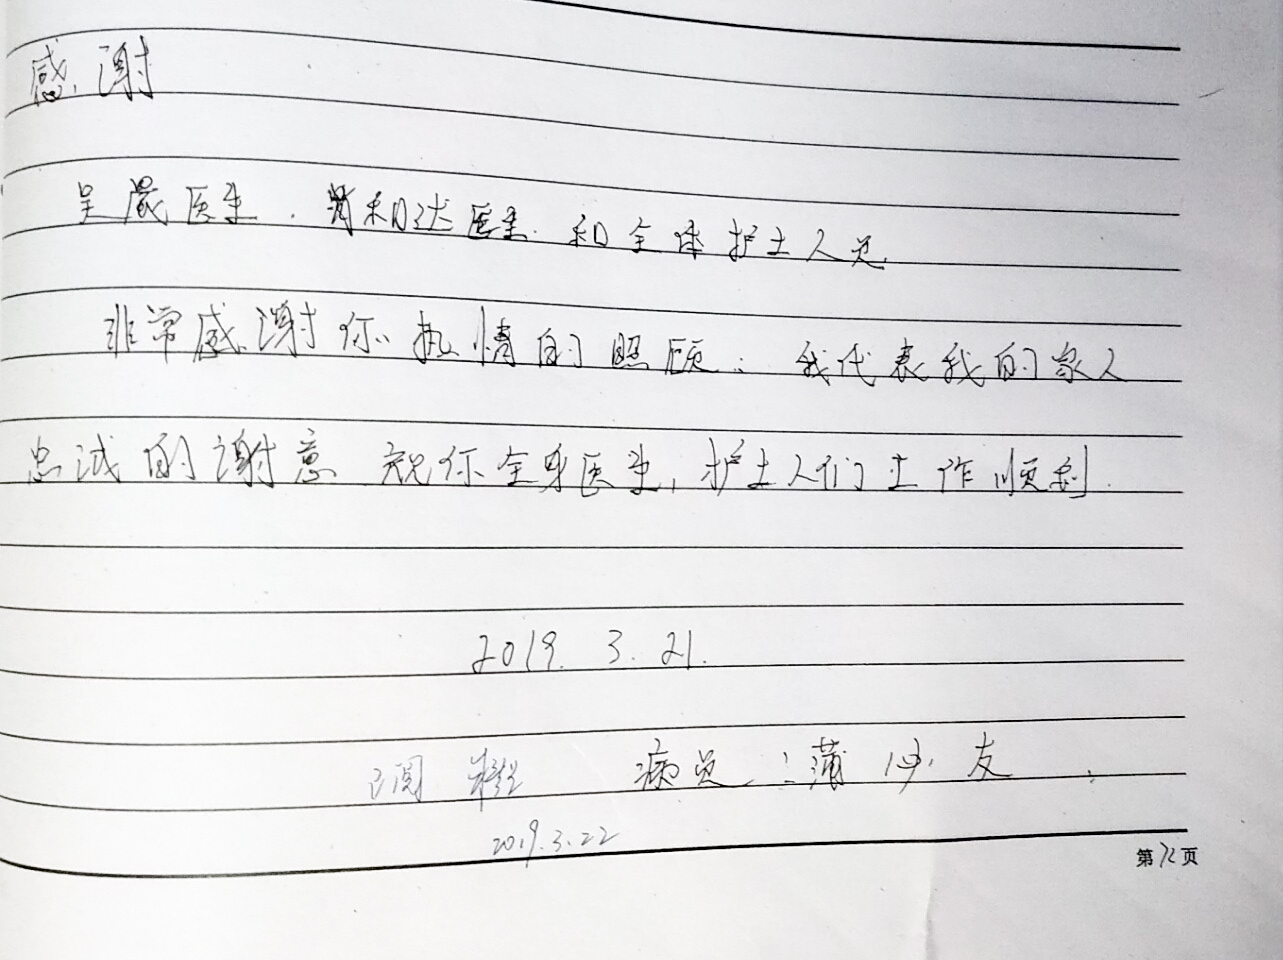 感谢
吴晟医生.肖和达医生.和全体护士人员
非常感谢你热情的照顾.我代表我的家人
忠诚的谢意 祝你全身医生,护士人们工作顺利.
2019.3.21.
病员:蒲 友
2019.3.22
第72页